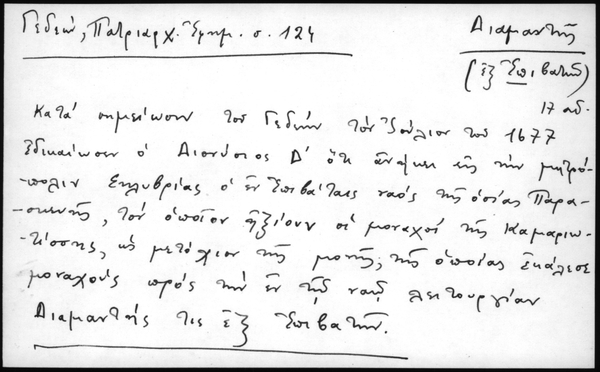 Γεδεών, Πατριαρχ. Ἐφημ. σ. 124
Διαμαντῆς
(ἐξ Ἐπιβατῶν)
17 αἰ.
Κατά σημείωσιν τοῦ Γεδεών τόν Ἰούλιον τοῦ 1677
ἐδικαίωσεν ὁ Διονύσιος Δ' ὅτι ἀνήκει εἰς τήν μητρό-
-πολιν Σηλυβρίας ὁ ἐν Ἐπιβάταις ναός τῆς ὁσίας Παρα-
-σκευῆς, τόν ὁποῖον ἠξίουν οἱ μοναχοί τῆς Καμαριω-
-τίσσης, ὡς μετόχιον τῆς μονῆς, τῆς ὁποίας ἐκάλεσε
μοναχούς πρός τήν ἐν τῷ ναῷ λειτουργίαν
Διαμαντῆς τις ἐξ Ἐπιβατῶν.